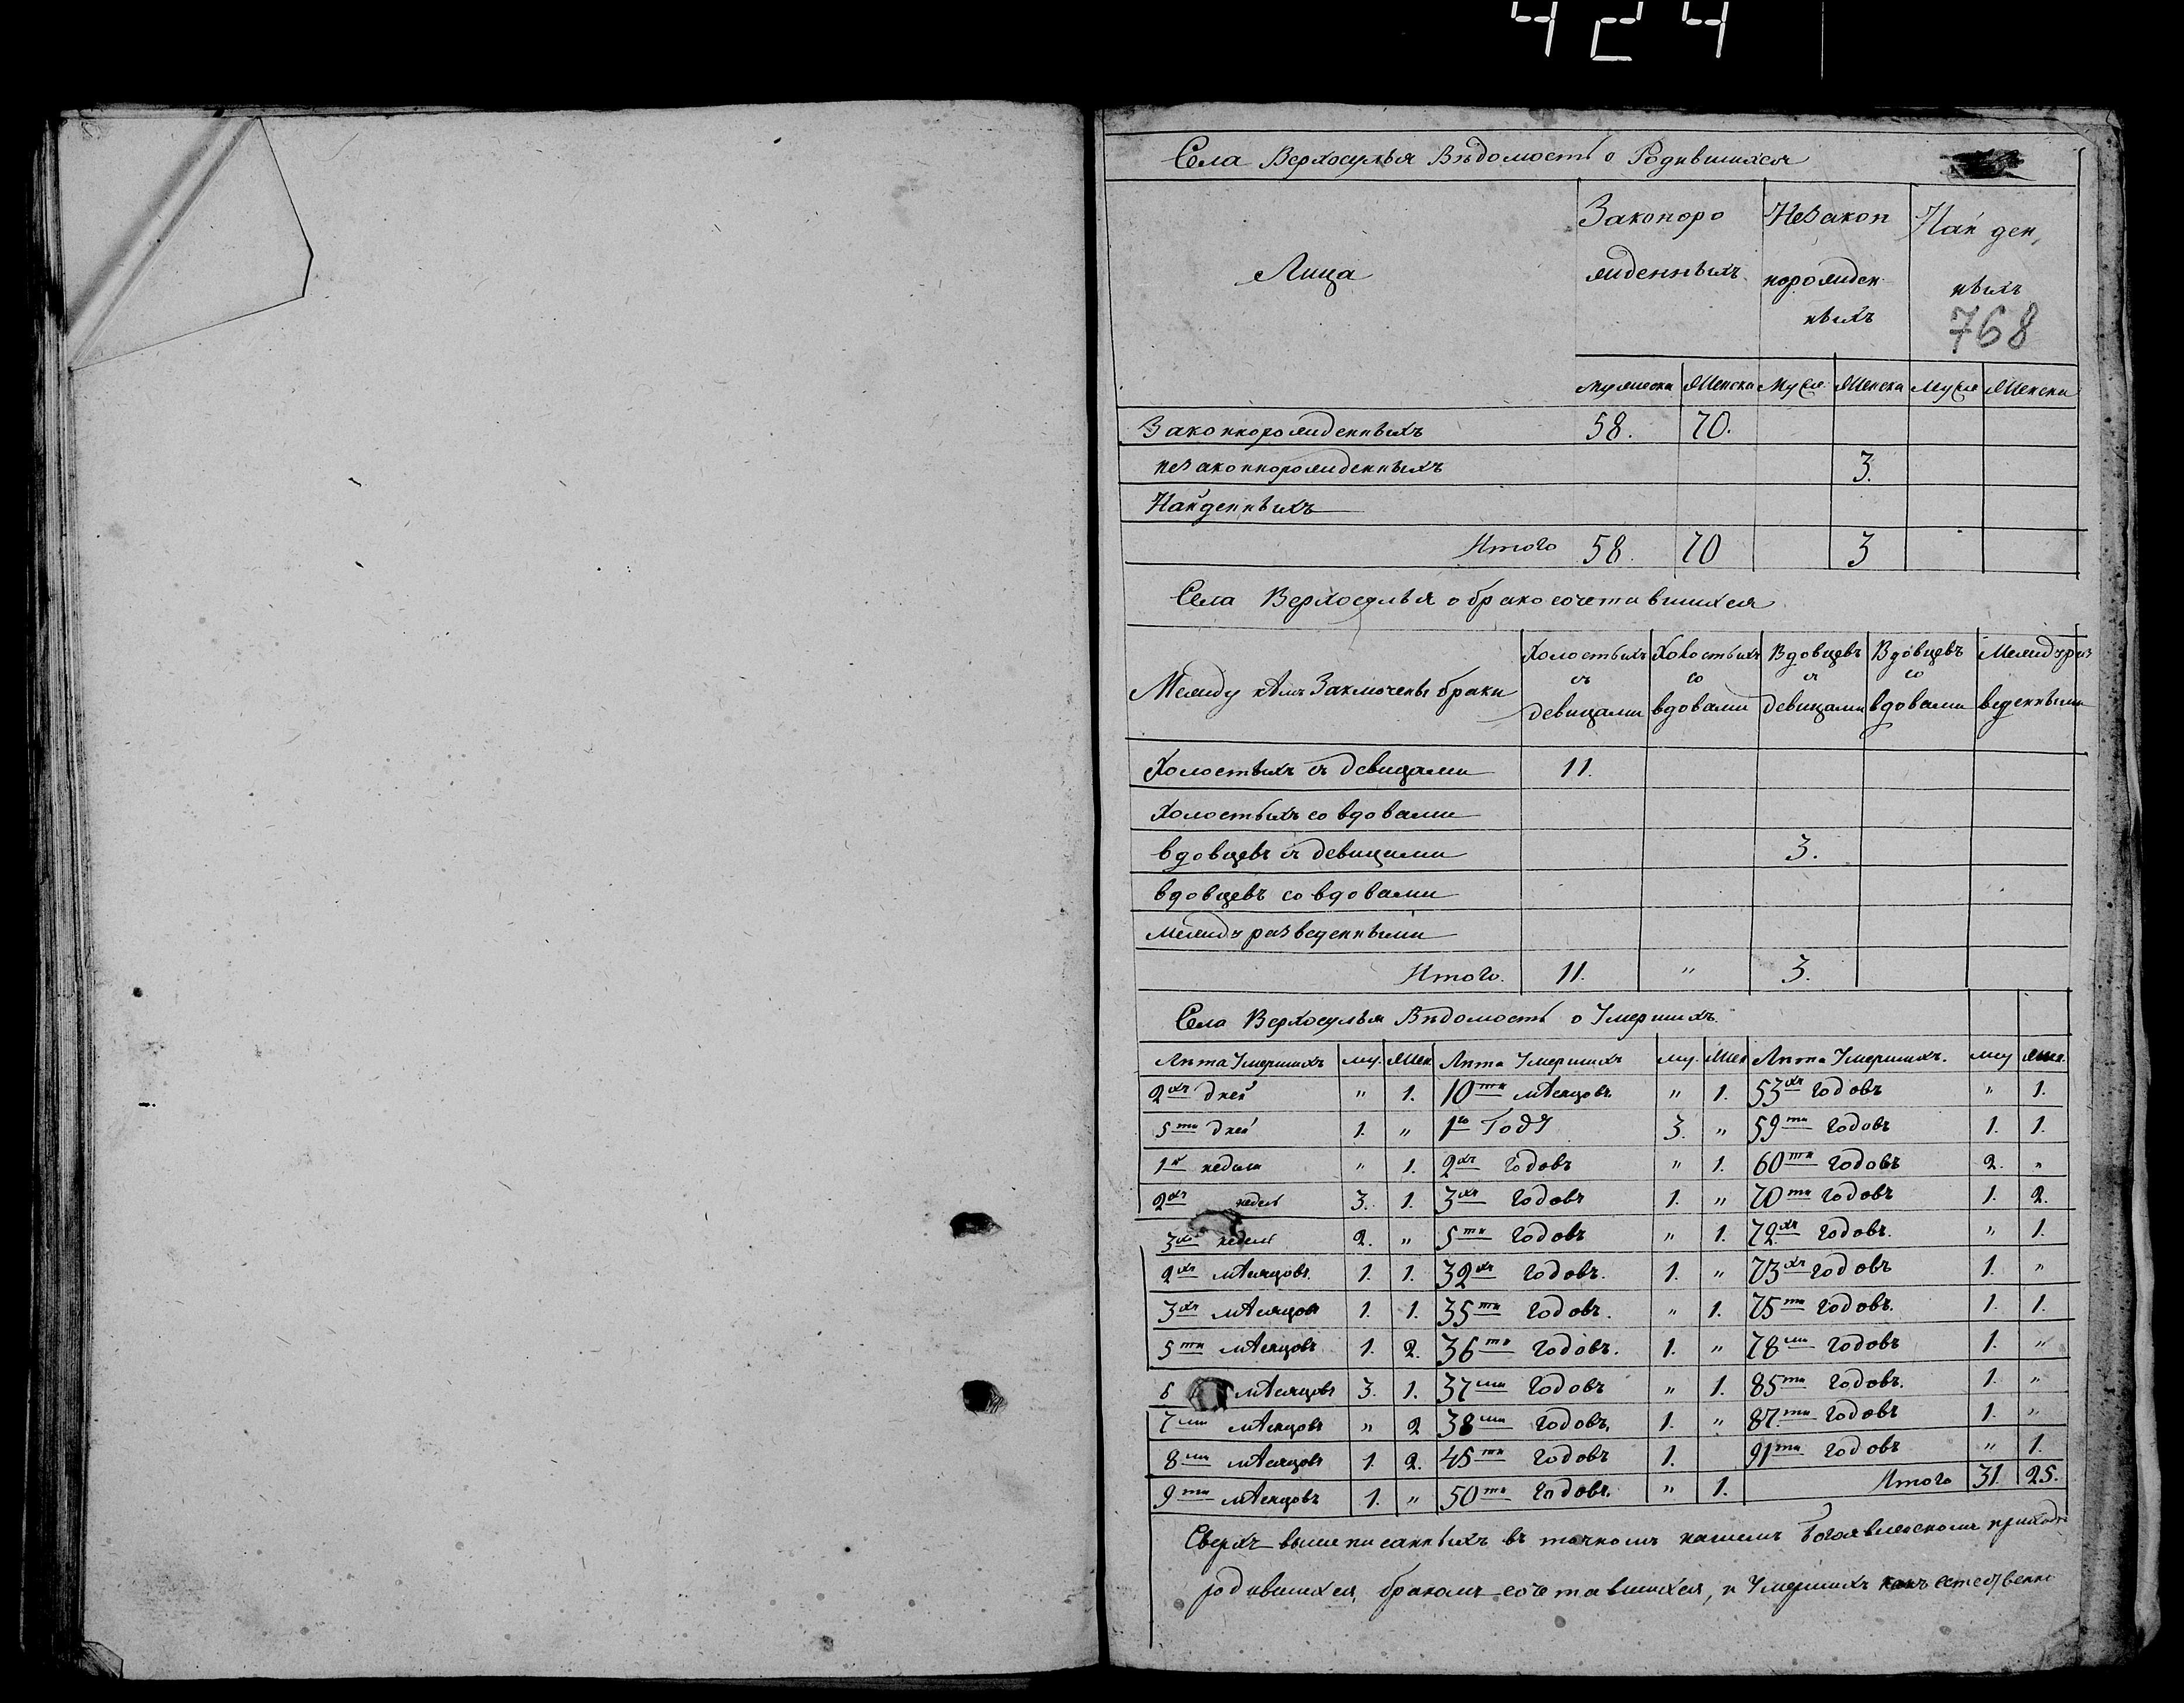 424
Села Верхосулья Вѣдомость о Родившихся
Лица
Законоро
жденныхъ
Незакон
норожден
ныхъ
Най ден,
ныхъ
768
мужеска Женска Муже Женска Муже Женска
Законнорожденныхъ 58. 70.
незаконнорожденныхъ 3.
Найденныхъ
Итого 58. 70 3
Села Верхосулья о бракосочетавшихся
Между кѣмъ Заключены браки
Холостыхъ съ девицами
Холостыхъ со вдовами
Вдовцевъ съ девицами
Вдовцевъ со вдовами
Между раз веденными
Холостыхъ съ девицами 11.
Холостыхъ со вдовами
вдовцевъ съ девицами 3.
вдовцевъ со вдовами
между разведенными
Итого. 11. " 3.
Села Верхосулья Вѣдомость о Умершихъ.
Лѣта Умершихъ му. Жен. Лѣта Умершихъ му. Жен Лѣта Умершихъ. му жен.
2хъ дней " 1. 10ти мѣсяцовъ " 1. 53хъ годовъ " 1.
5ти дней 1. " 1го Году 3. " 59ти годовъ 1. 1.
1й недели " 1. 2хъ годовъ " 1. 60ти годовъ 2. "
2хъ недель 3. 1. 3хъ годовъ 1. " 70ти годовъ 1. 2.
3хъ недель 2. " 5ти годовъ " 1. 72хъ годовъ. " 1.
2хъ мѣсяцовъ. 1. 1. 32хъ годовъ. 1. " 73хъ годовъ 1. "
3хъ мѣсяцовъ 1. 1. 35ти годовъ. " 1. 75ти годовъ. 1. 1.
5ти мѣсяцовъ 1. 2. 36ти годовъ. 1. " 78ми годовъ 1. "
6 мѣсяцовъ 3. 1. 37ми годовъ " 1. 85ти годовъ. 1. "
7ми мѣсяцовъ " 2 38ми годовъ. 1. " 87ми годовъ 1. "
8ми мѣсяцовъ 1. 2. 45ти годовъ 1. 91ти годовъ " 1.
9ти мѣсяцовъ 1. " 50ти годовъ. " 1. Итого 31. 25.
Сверхъ вышеписанныхъ въ точномъ нашемъ Богоявленскомъ приходѣ
родившихся, бракомъ сочетавшихся, и Умершихъ какъ естественно